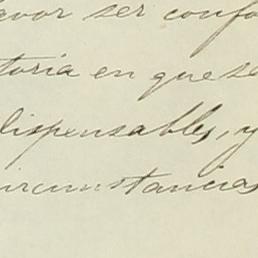 avor ser confo
toria en que se
dispensables, y
ircunstancias